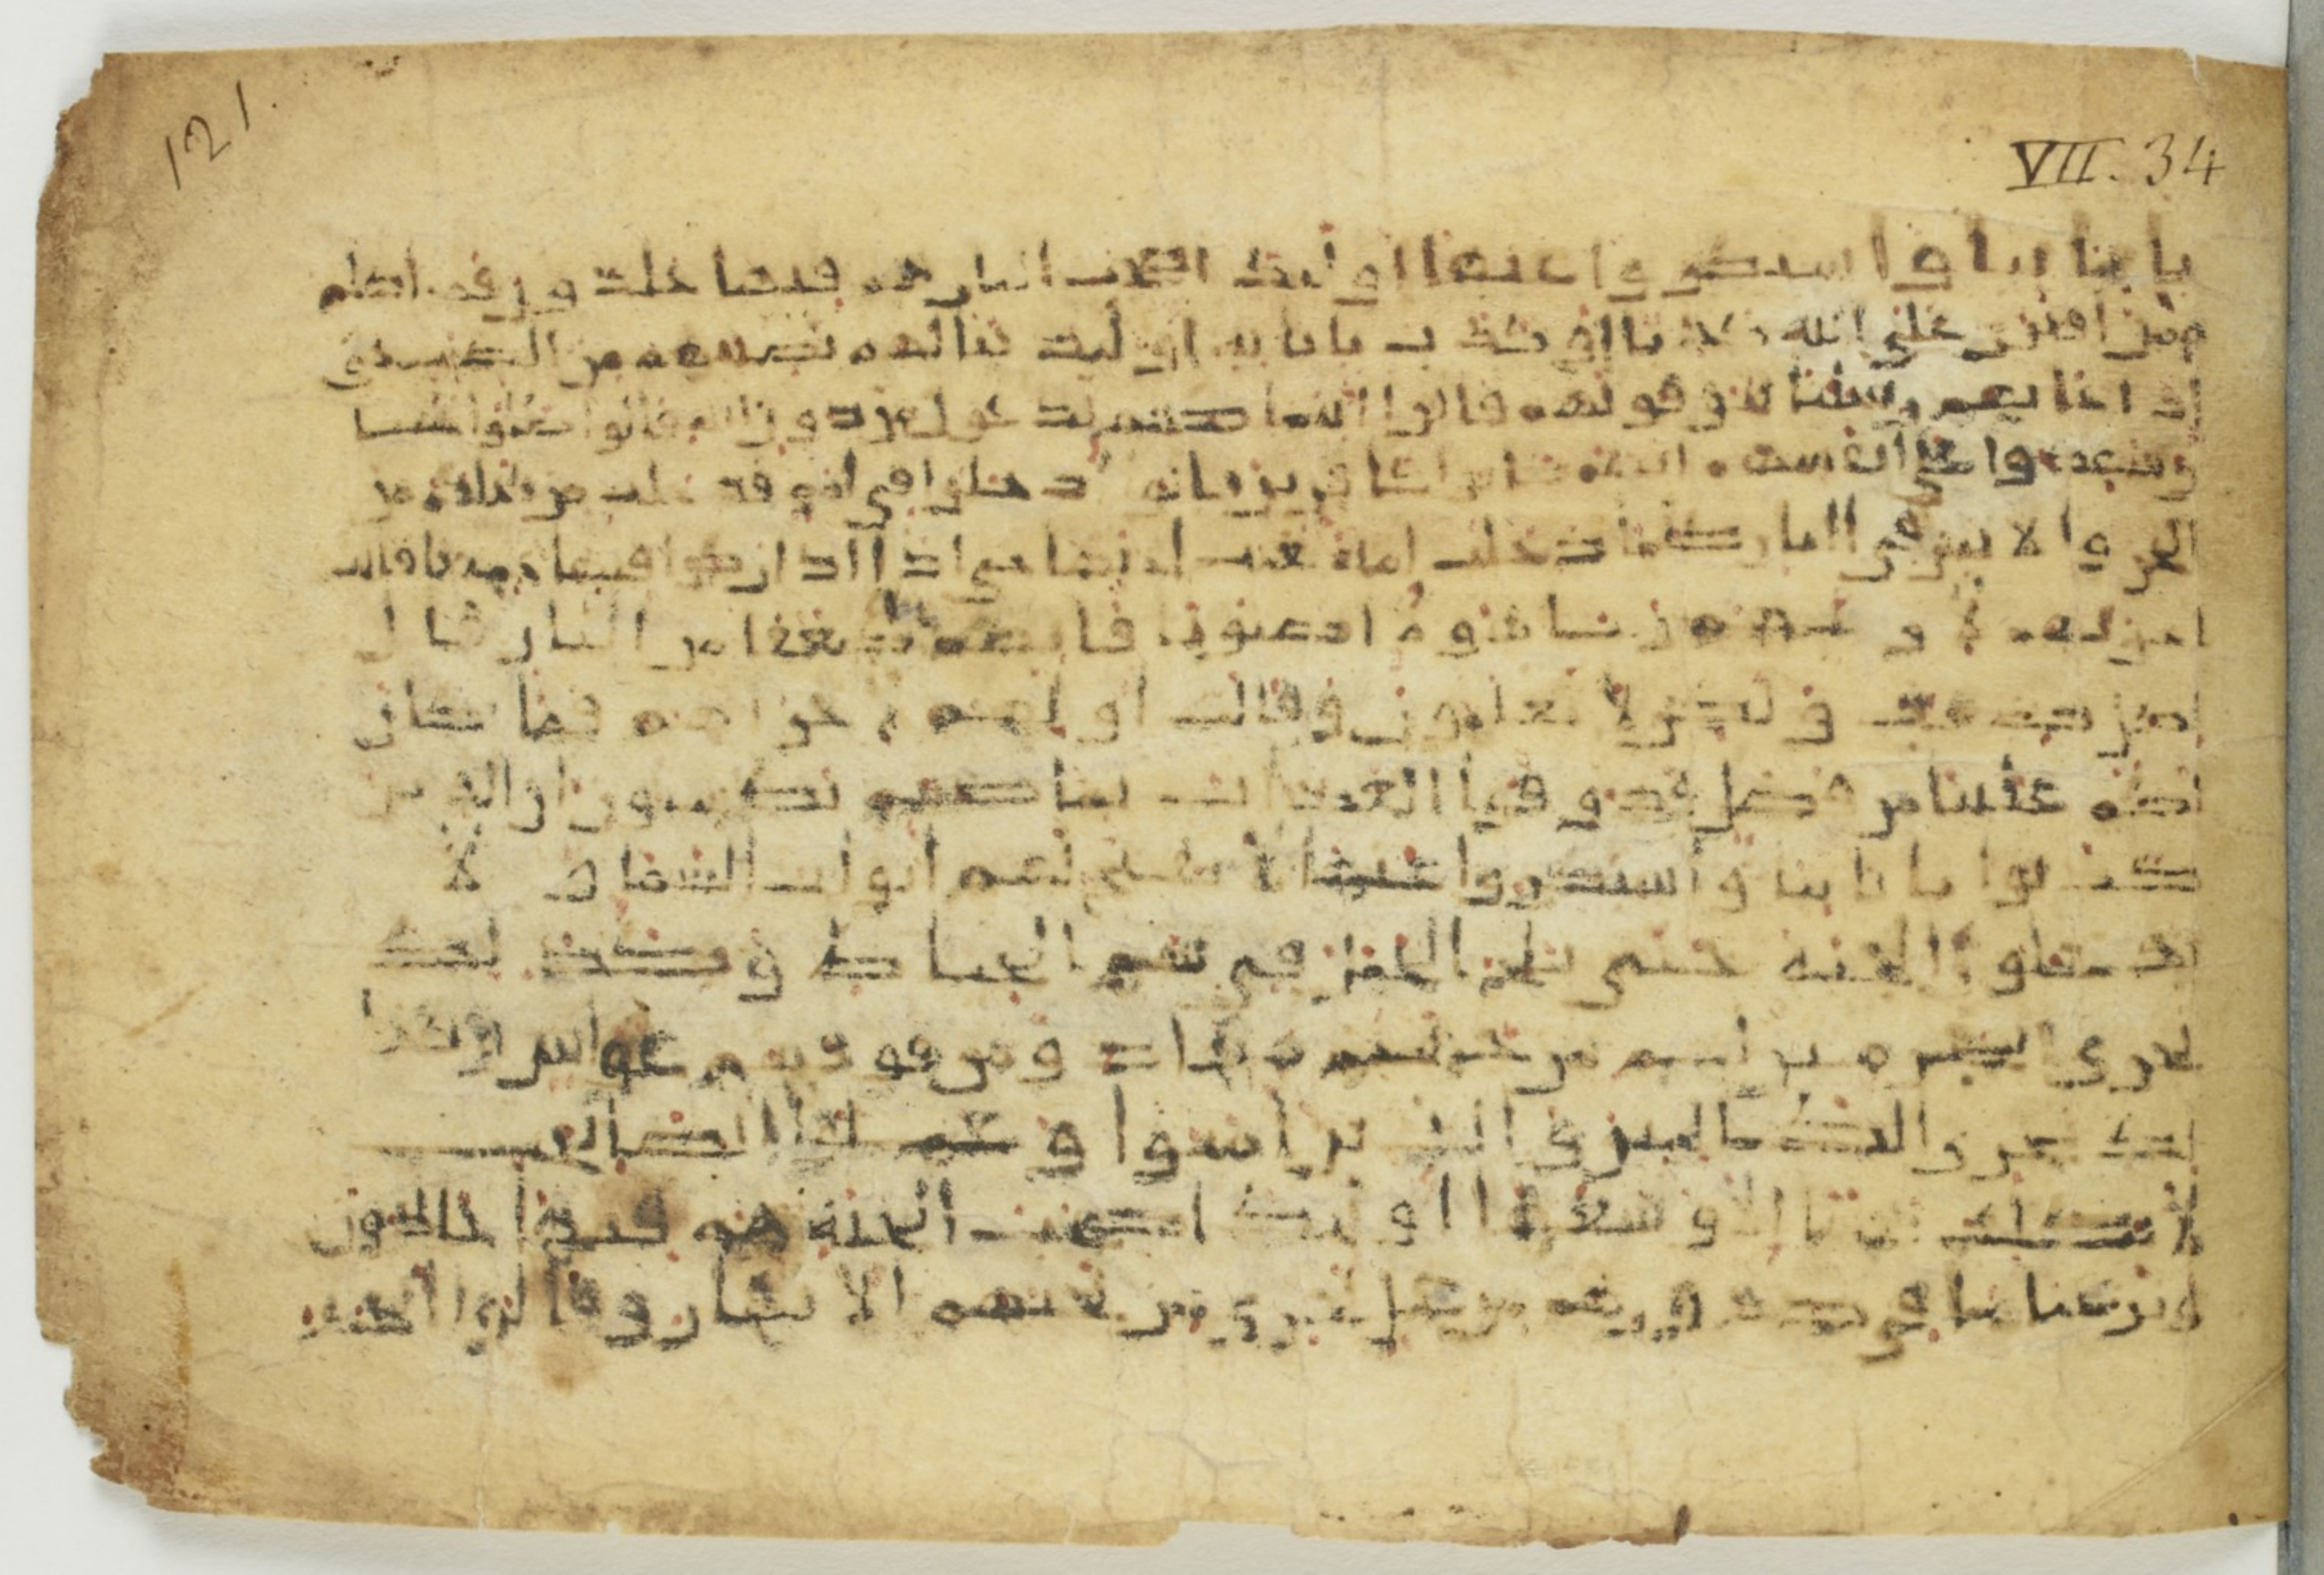 121.
VII. 34
بايتنا واستكبروا عنها اوليك اصحب النار هم فيها خلدون فمن اظلم
ممن افترى على الله كذبا او كذب بايته اوليك ينالهم نصيبهم من الكتب حتى
اذا جاتهم رسلنا يتوفونهم قالوا اين ما كنتم تدعون من دون الله قالوا ضلوا عنا
وشهدوا على انفسهم انهم كانوا كفرين قال ادخلوا في امم قد خلت من قبلكم من
الجن والانس في النار كلما دخلت امة لعنت اختها حتى اذا اداركوا فيها جميعا قالت
اخرىهم لاولىهم ربنا هولا اضلونا فاتهم عذابا ضعفا من النار قال
لكل ضعف ولكن لا تعلمون وقالت اولىهم لاخرىهم فما كان
لكم علينا من فضل فذوقوا العذاب بما كنتم تكسبون ان الذين
كذبوا بايتنا واستكبروا عنها لا تفتح لهم ابواب السما ولا
يدخلون الجنة حتى يلج الجمل في سم الخياط وكذلك
نجزي المجرمين لهم من جهنم مهاد ومن فوقهم غواش وكذا
لك نجزي الظلمين والذين امنوا وعملوا الصلحت
لا نكلف نفسا الا وسعها اوليك اصحب الجنة هم فيها خلدون
ونزعنا ما في صدورهم من غل تجري من تحتهم الانهار وقالوا الحمد